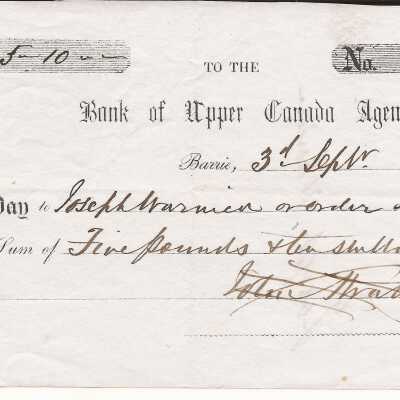 5 - 10 - -
TO THE
No.
Bank of Upper Canada Agen
Barrie, 3d Septr
Pay to Joseph Warnica or order
Sum of Five pounds & ten shill
John